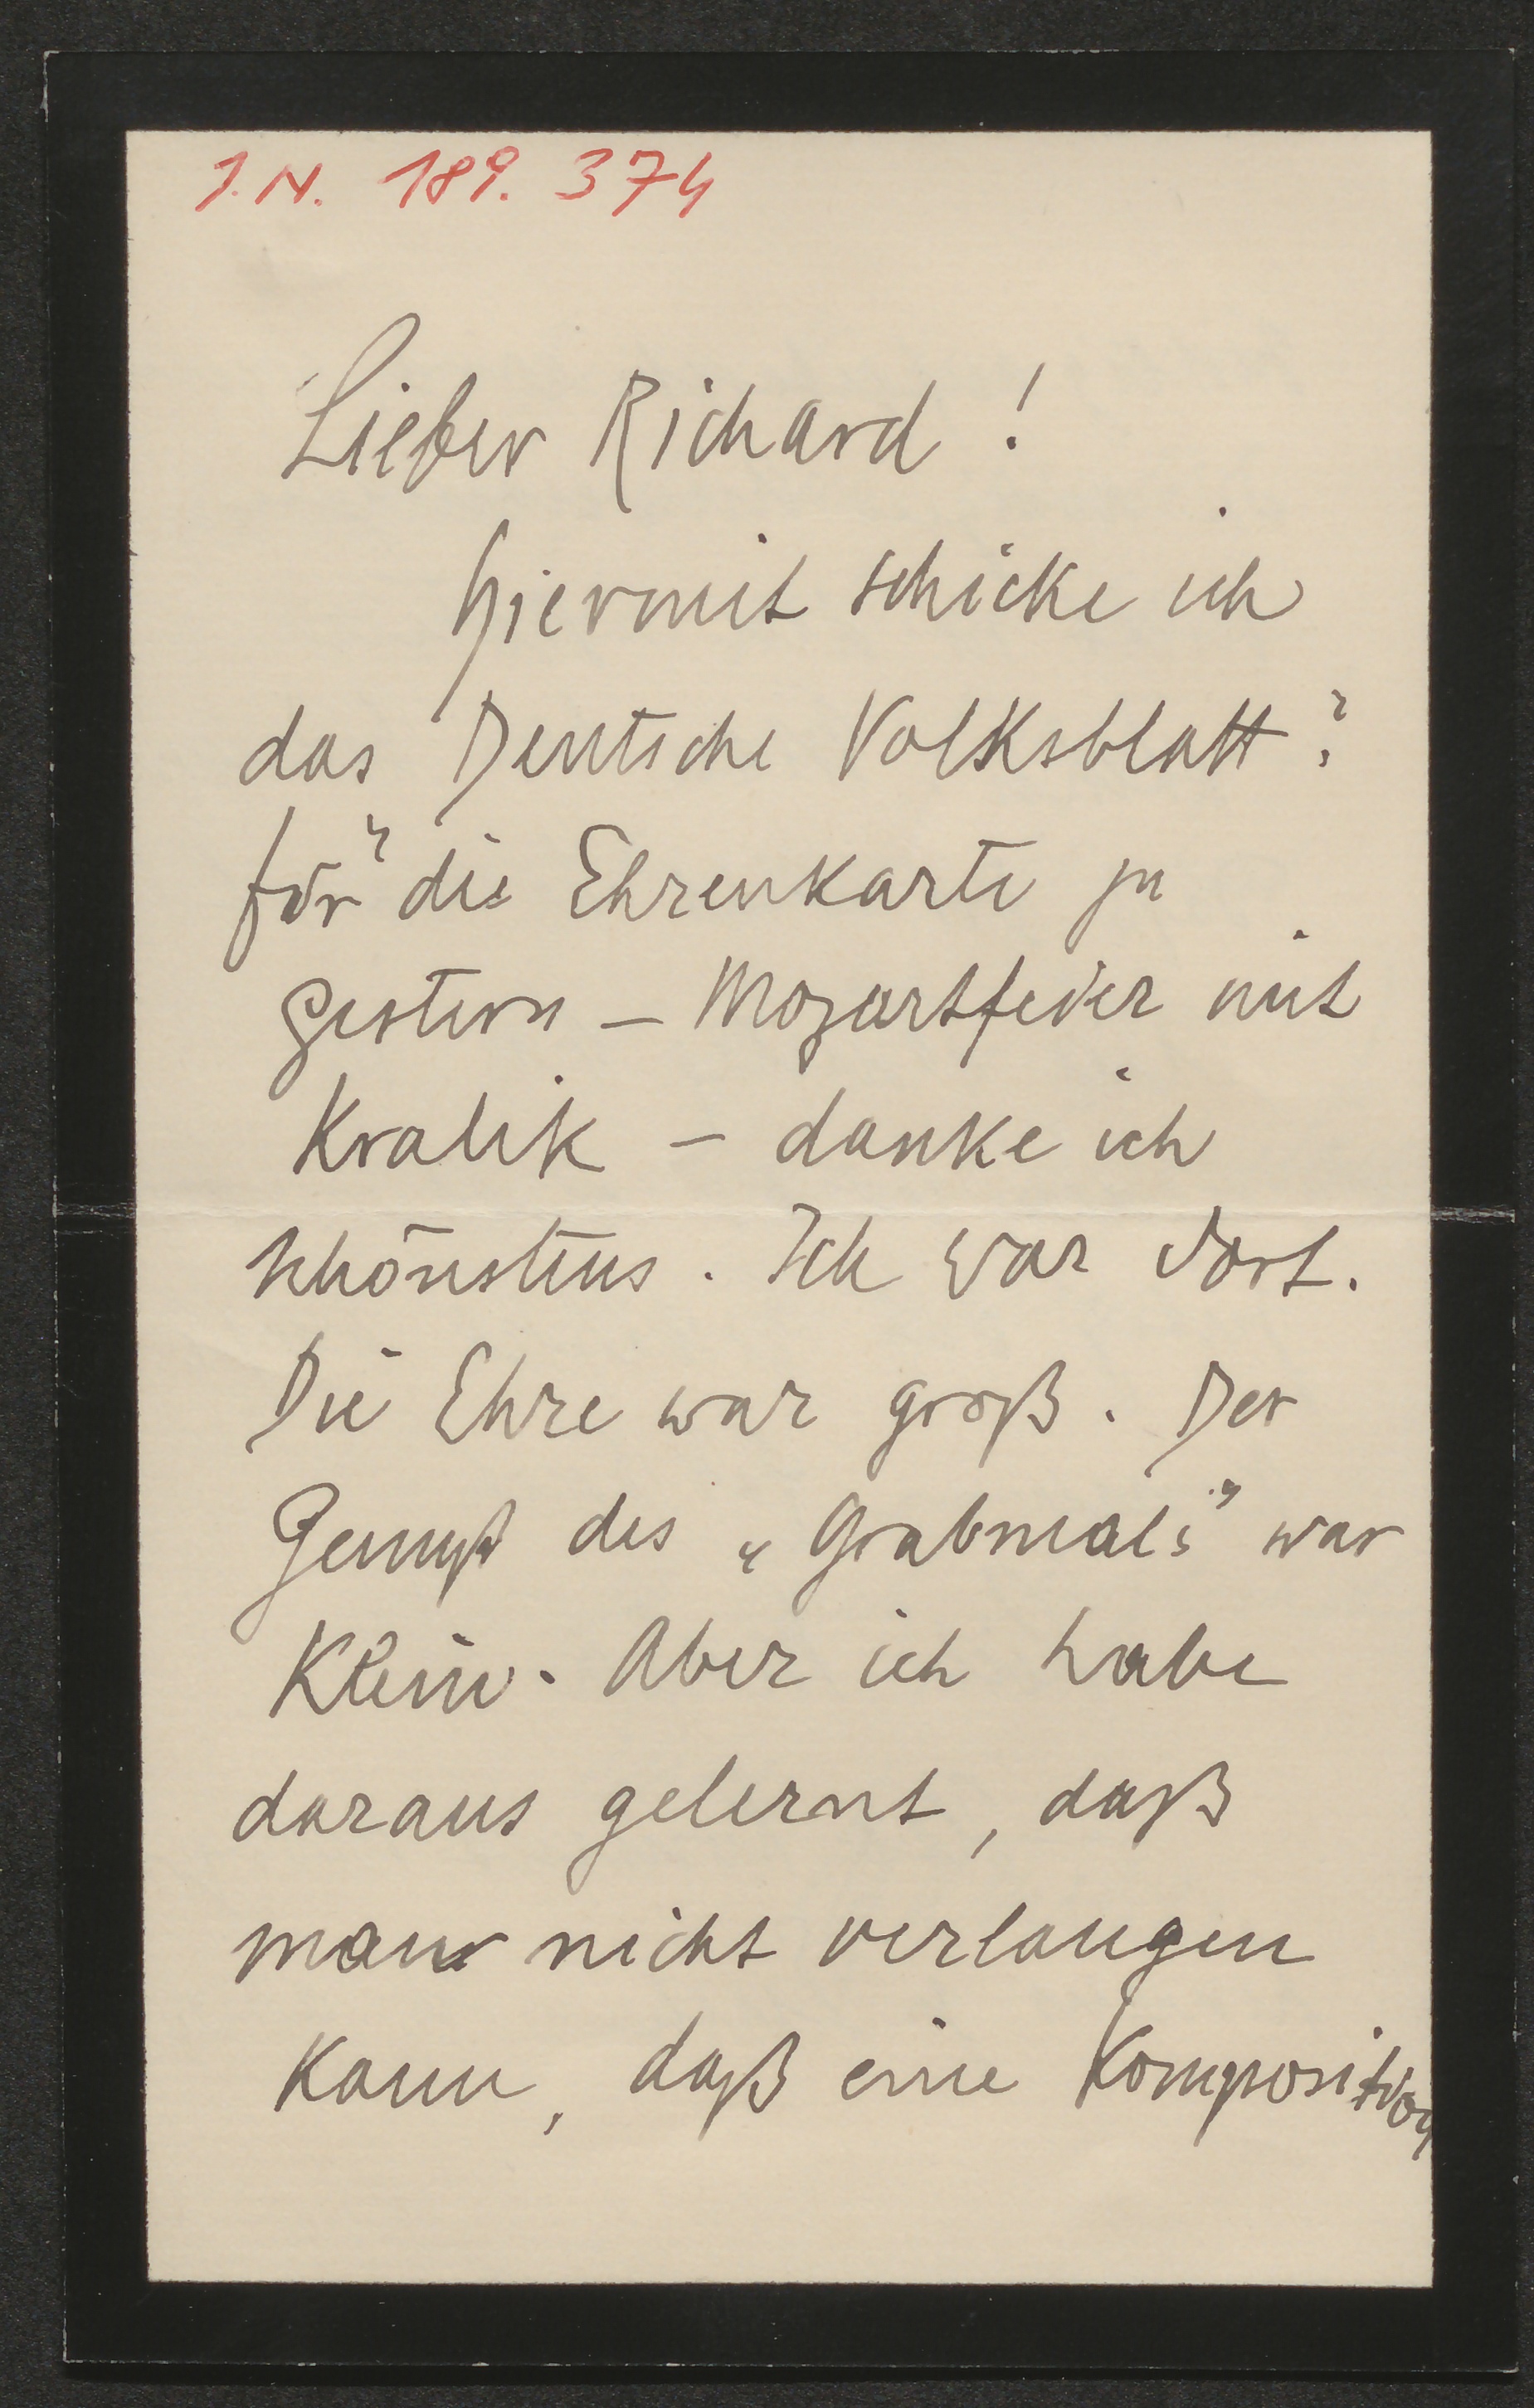 J.N. 189.374
Lieber Richard!
Hiermit schicke ich
das Deutsche Volksblatt:
für die Ehrenkarte zu
gestern – Mozartfeier mit
Kralik – danke ich
schönstens. Ich war dort.
Die Ehre war groß. Der
Genuß des „Grabmals" war
klein. Aber ich habe
daraus gelernt, daß
man nicht verlangen
kann, daß eine Komposition